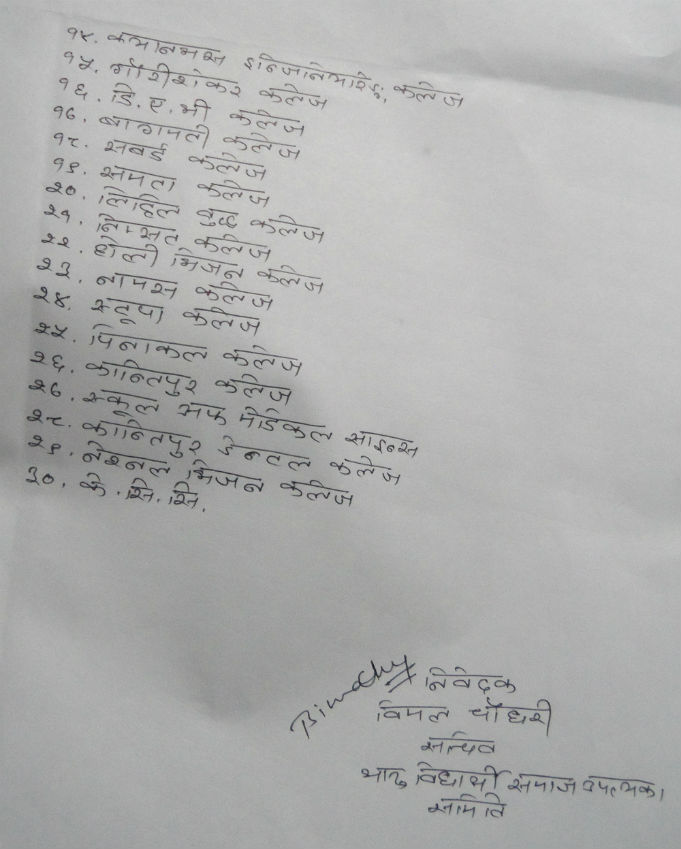 १४. क्यानभस इन्जिनियरिङ कलेज
१५. गौरीशंकर कलेज
१६. डि.ए.भी कलेज
१७. बागमती कलेज
१८. सवर्ड कलेज
१९. समता कलेज
२०. लिटिल बुद्ध कलेज
२१. निम्सत कलेज
२२. होली भिजन कलेज
२३. नामस कलेज
२४. स्तूपा कलेज
२५. पिनाकल कलेज
२६. कान्तिपुर कलेज
२७. स्कूल अफ मेडिकल साइन्स
२८. कान्तिपुर डेन्टल कलेज
२९. नेशनल भिजन कलेज
३०. के.सि.सि.
निवेदक
विमल चौधरी
सचिव
थारु विद्यार्थी समाज उपत्यका
समिति